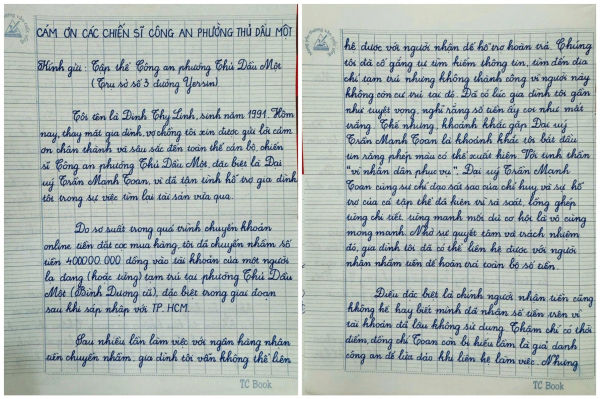 CÁM ƠN CÁC CHIẾN SĨ CÔNG AN PHƯỜNG THỦ DẦU MỘT
Kính gửi: Tập thể Công an phường Thủ Dầu Một
(Trụ sở số 3 đường Yersin)
Tôi tên là Đinh Thy Linh, sinh năm 1991. Hôm
nay, thay mặt gia đình, vợ chồng tôi xin được gửi lời cám
ơn chân thành và sâu sắc đến toàn thể cán bộ, chiến
sĩ Công an phường Thủ Dầu Một, đặc biệt là Đại
uý Trần Mạnh Toan, vì đã tận tình hỗ trợ gia đình
tôi trong vụ việc tìm lại tài sản vừa qua.
Do sơ suất trong quá trình chuyển khoản
online tiền đặt cọc mua hàng, tôi đã chuyển nhầm số
tiền 400.000.000 đồng vào tài khoản của một người
lạ đang (hoặc từng) tạm trú tại phường Thủ Dầu
Một (Bình Dương cũ), đặc biệt trong giai đoạn
sau khi sáp nhập với TP. HCM.
Sau nhiều lần làm việc với ngân hàng nhận
tiền chuyển nhầm, gia đình tôi vẫn không thể liên
TC Book
hệ được với người nhận để hỗ trợ hoàn trả. Chúng
tôi đã cố gắng tự tìm kiếm thông tin, tìm đến địa
chỉ tạm trú nhưng không thành công vì người này
không còn cư trú tại đó. Đã có lúc gia đình tôi gần
như tuyệt vọng, nghĩ rằng số tiền ấy coi như mất
trắng. Thế nhưng, khoảnh khắc gặp Đại uý
Trần Mạnh Toan là khoảnh khắc tôi bắt đầu
tin rằng phép màu có thể xuất hiện. Với tinh thần
"vì nhân dân phục vụ", Đại uý Trần Mạnh
Toan cùng sự chỉ đạo sát sao của chỉ huy, và sự hỗ
trợ của cả tập thể đã kiên trì rà soát, lồng ghép
từng chi tiết, từng manh mối dù cơ hội là vô cùng
mỏng manh. Nhờ sự quyết tâm và trách nhiệm
đó, gia đình tôi đã có thể liên hệ được với người
nhận nhầm tiền để hoàn trả toàn bộ số tiền.
Điều đặc biệt là chính người nhận tiền cũng
không hề hay biết mình đã nhận số tiền trên vì
tài khoản đã lâu không sử dụng. Thậm chí có thời
điểm, đồng chí Toan còn bị hiểu lầm là giả danh
công an để lừa đảo khi liên hệ làm việc. Nhưng
TC Book